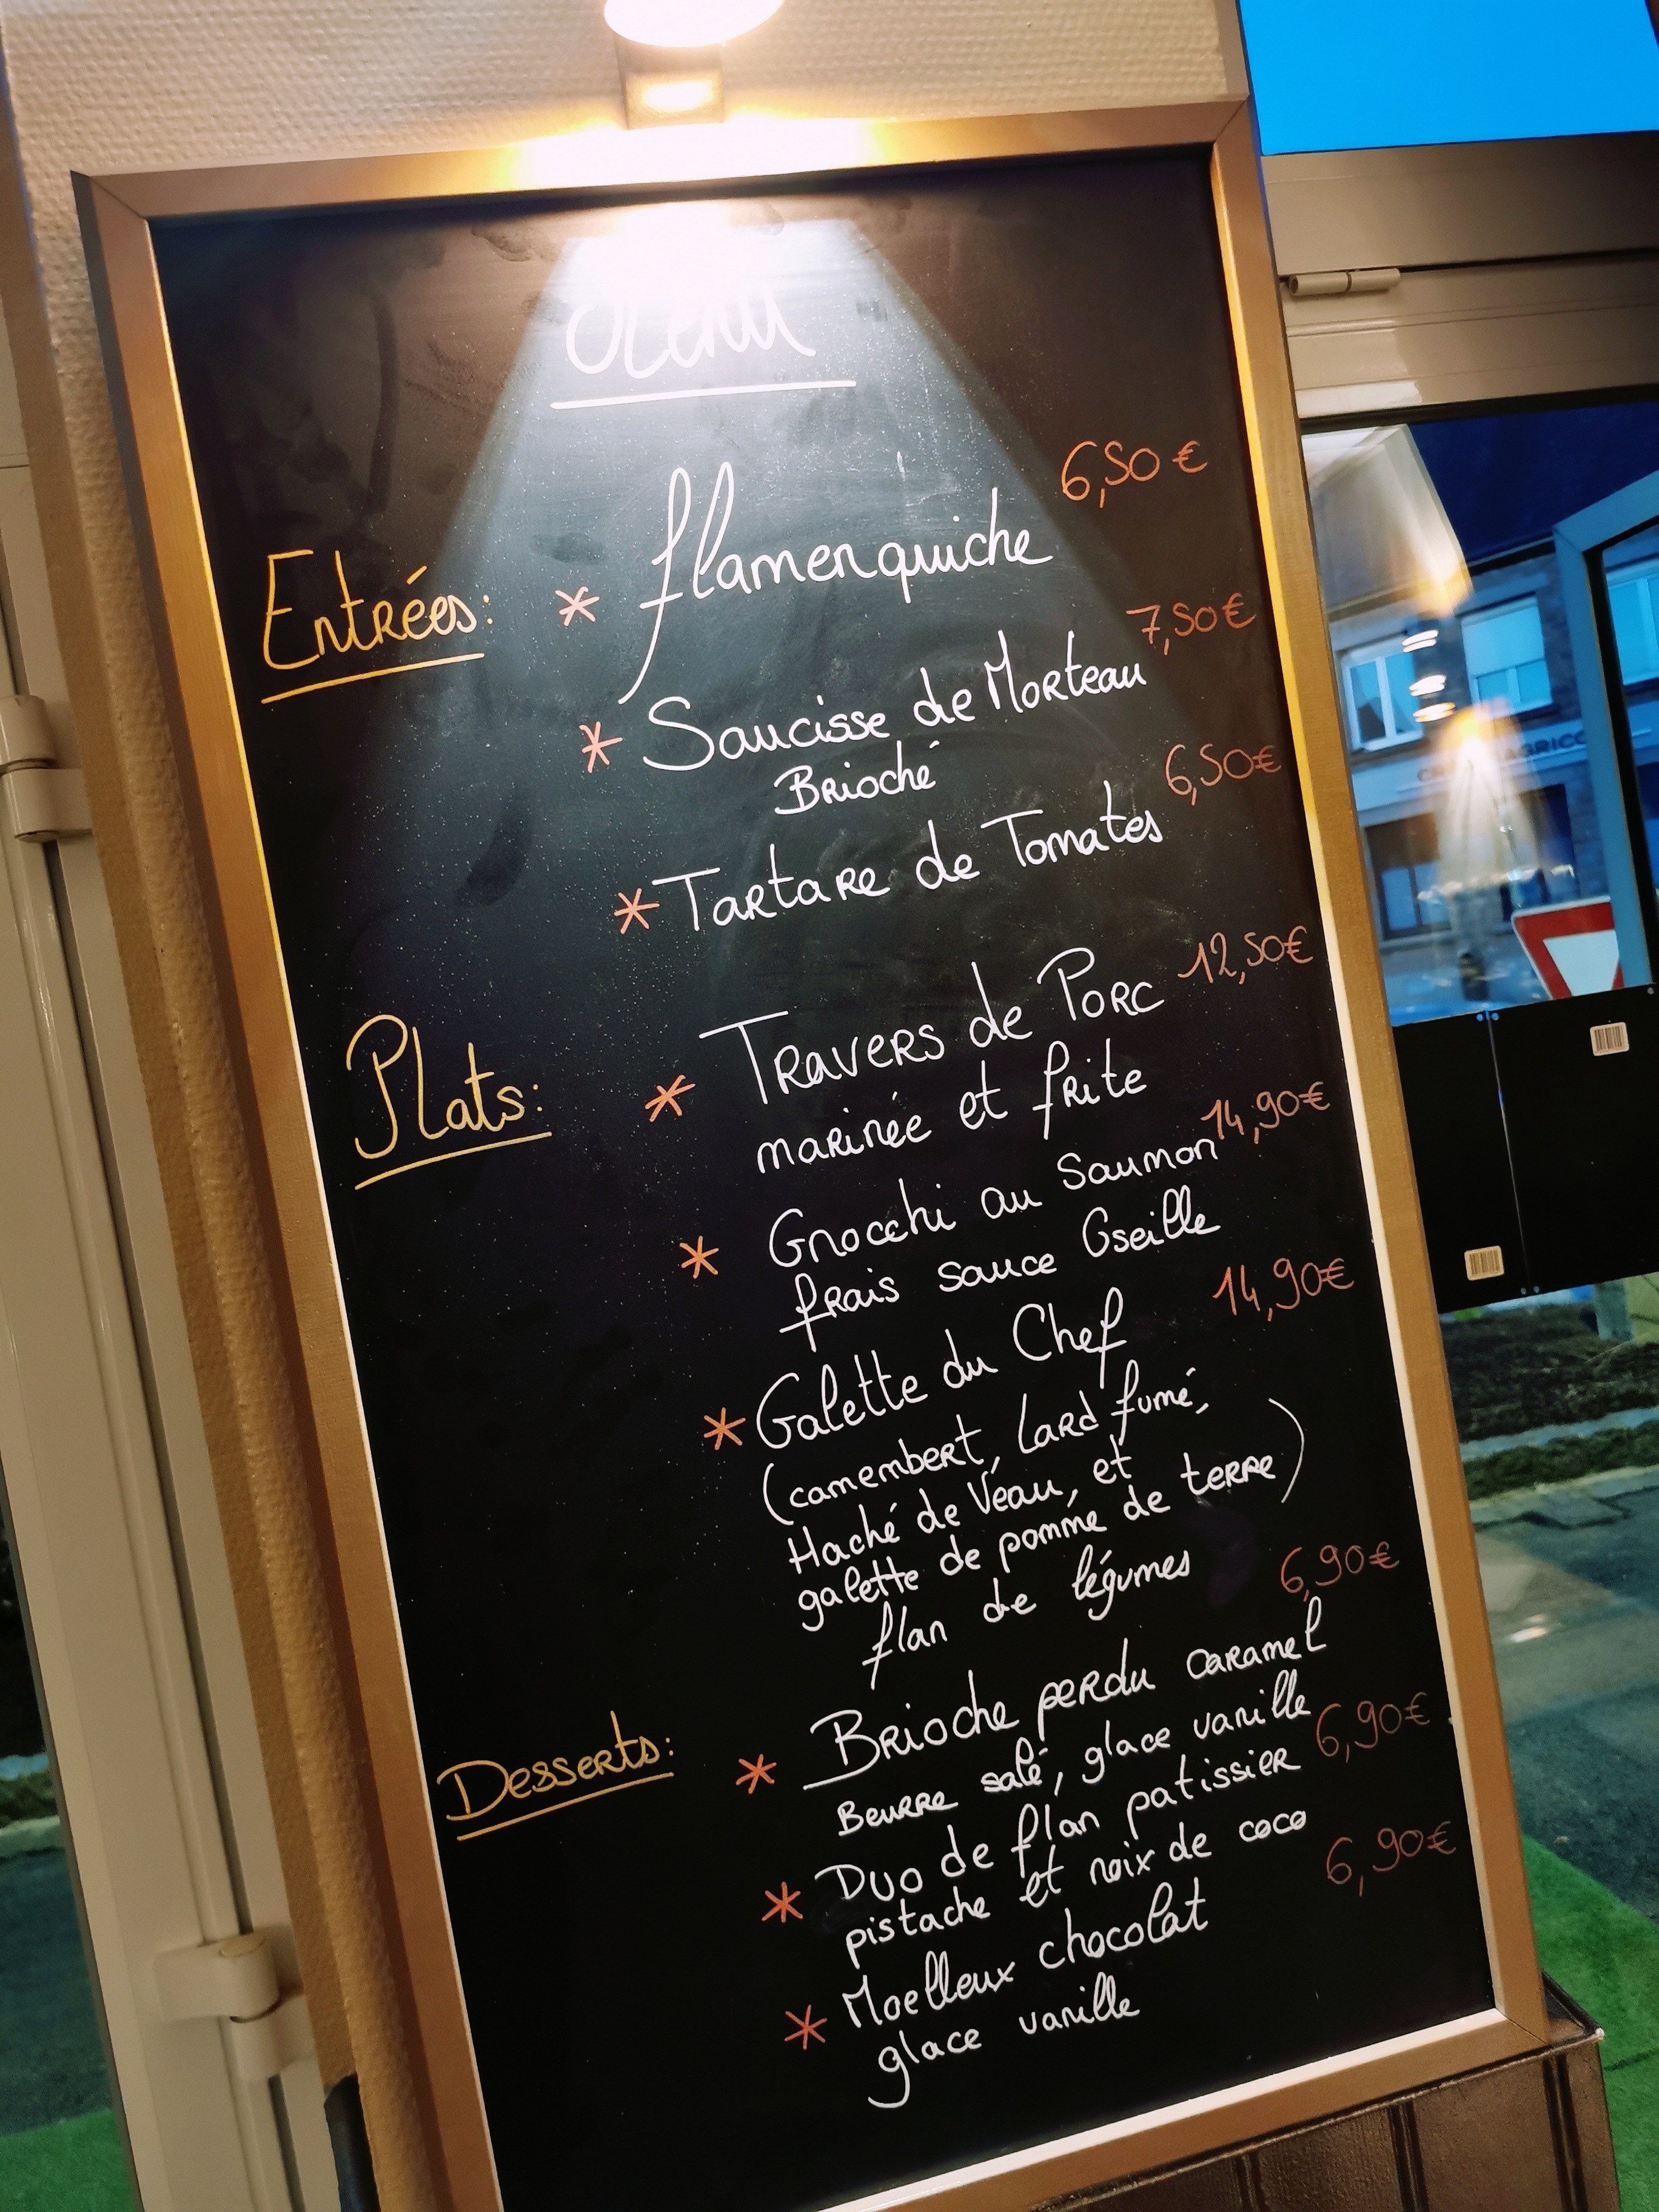 Menu
6,50€
Entrées: * flamenquiche
7,50€
* Saucisse de Morteau
Brioché
6,50€
* Tartare de Tomates
12,50€
Plats: * Travers de Porc
marinée et frite
14,90€
* Gnocchi au Saumon
frais sauce Oseille
14,90€
* Galette du Chef
(camembert, Lard fumé,
Haché de Veau, et
galette de pomme de terre)
flan de légumes
6,90€
Desserts: * Brioche perdu caramel
Beurre salé, glace vanille
6,90€
* Duo de flan patissier
pistache et noix de coco
6,90€
* Moelleux chocolat
glace vanille
AGRICO